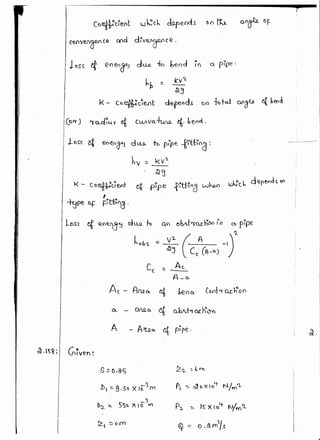 Coefficient which depends on the angle of
convergence and divergence.
Loss of energy due to bend in a pipe:
hb = kv²/2g
K - Coefficient depends on total angle of bend
(or) radius of curvature of bend.
Loss of energy due to pipe fitting:
hv = kv²/2g
K - Coefficient of pipe fitting when which depends on
type of fitting.
Loss of energy due to an obstruction in a pipe
hobs = V²/2g (A/Cc(A-a) - 1)²
Cc = Ac/A-a
Ac - Area of Vena Contraction
a - area of obstruction
A - Area of pipe.
2.
2.158: Given:
S = 0.85 Z2 = 6m
P2 = 15 x 10⁴ N/m²
Z1 = 0m Q = 0.2 m³/s